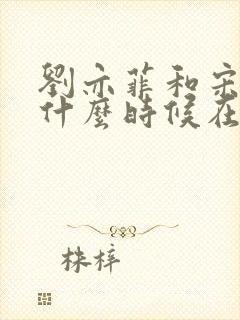 劉亦菲和宋
什麼時候在
株梓